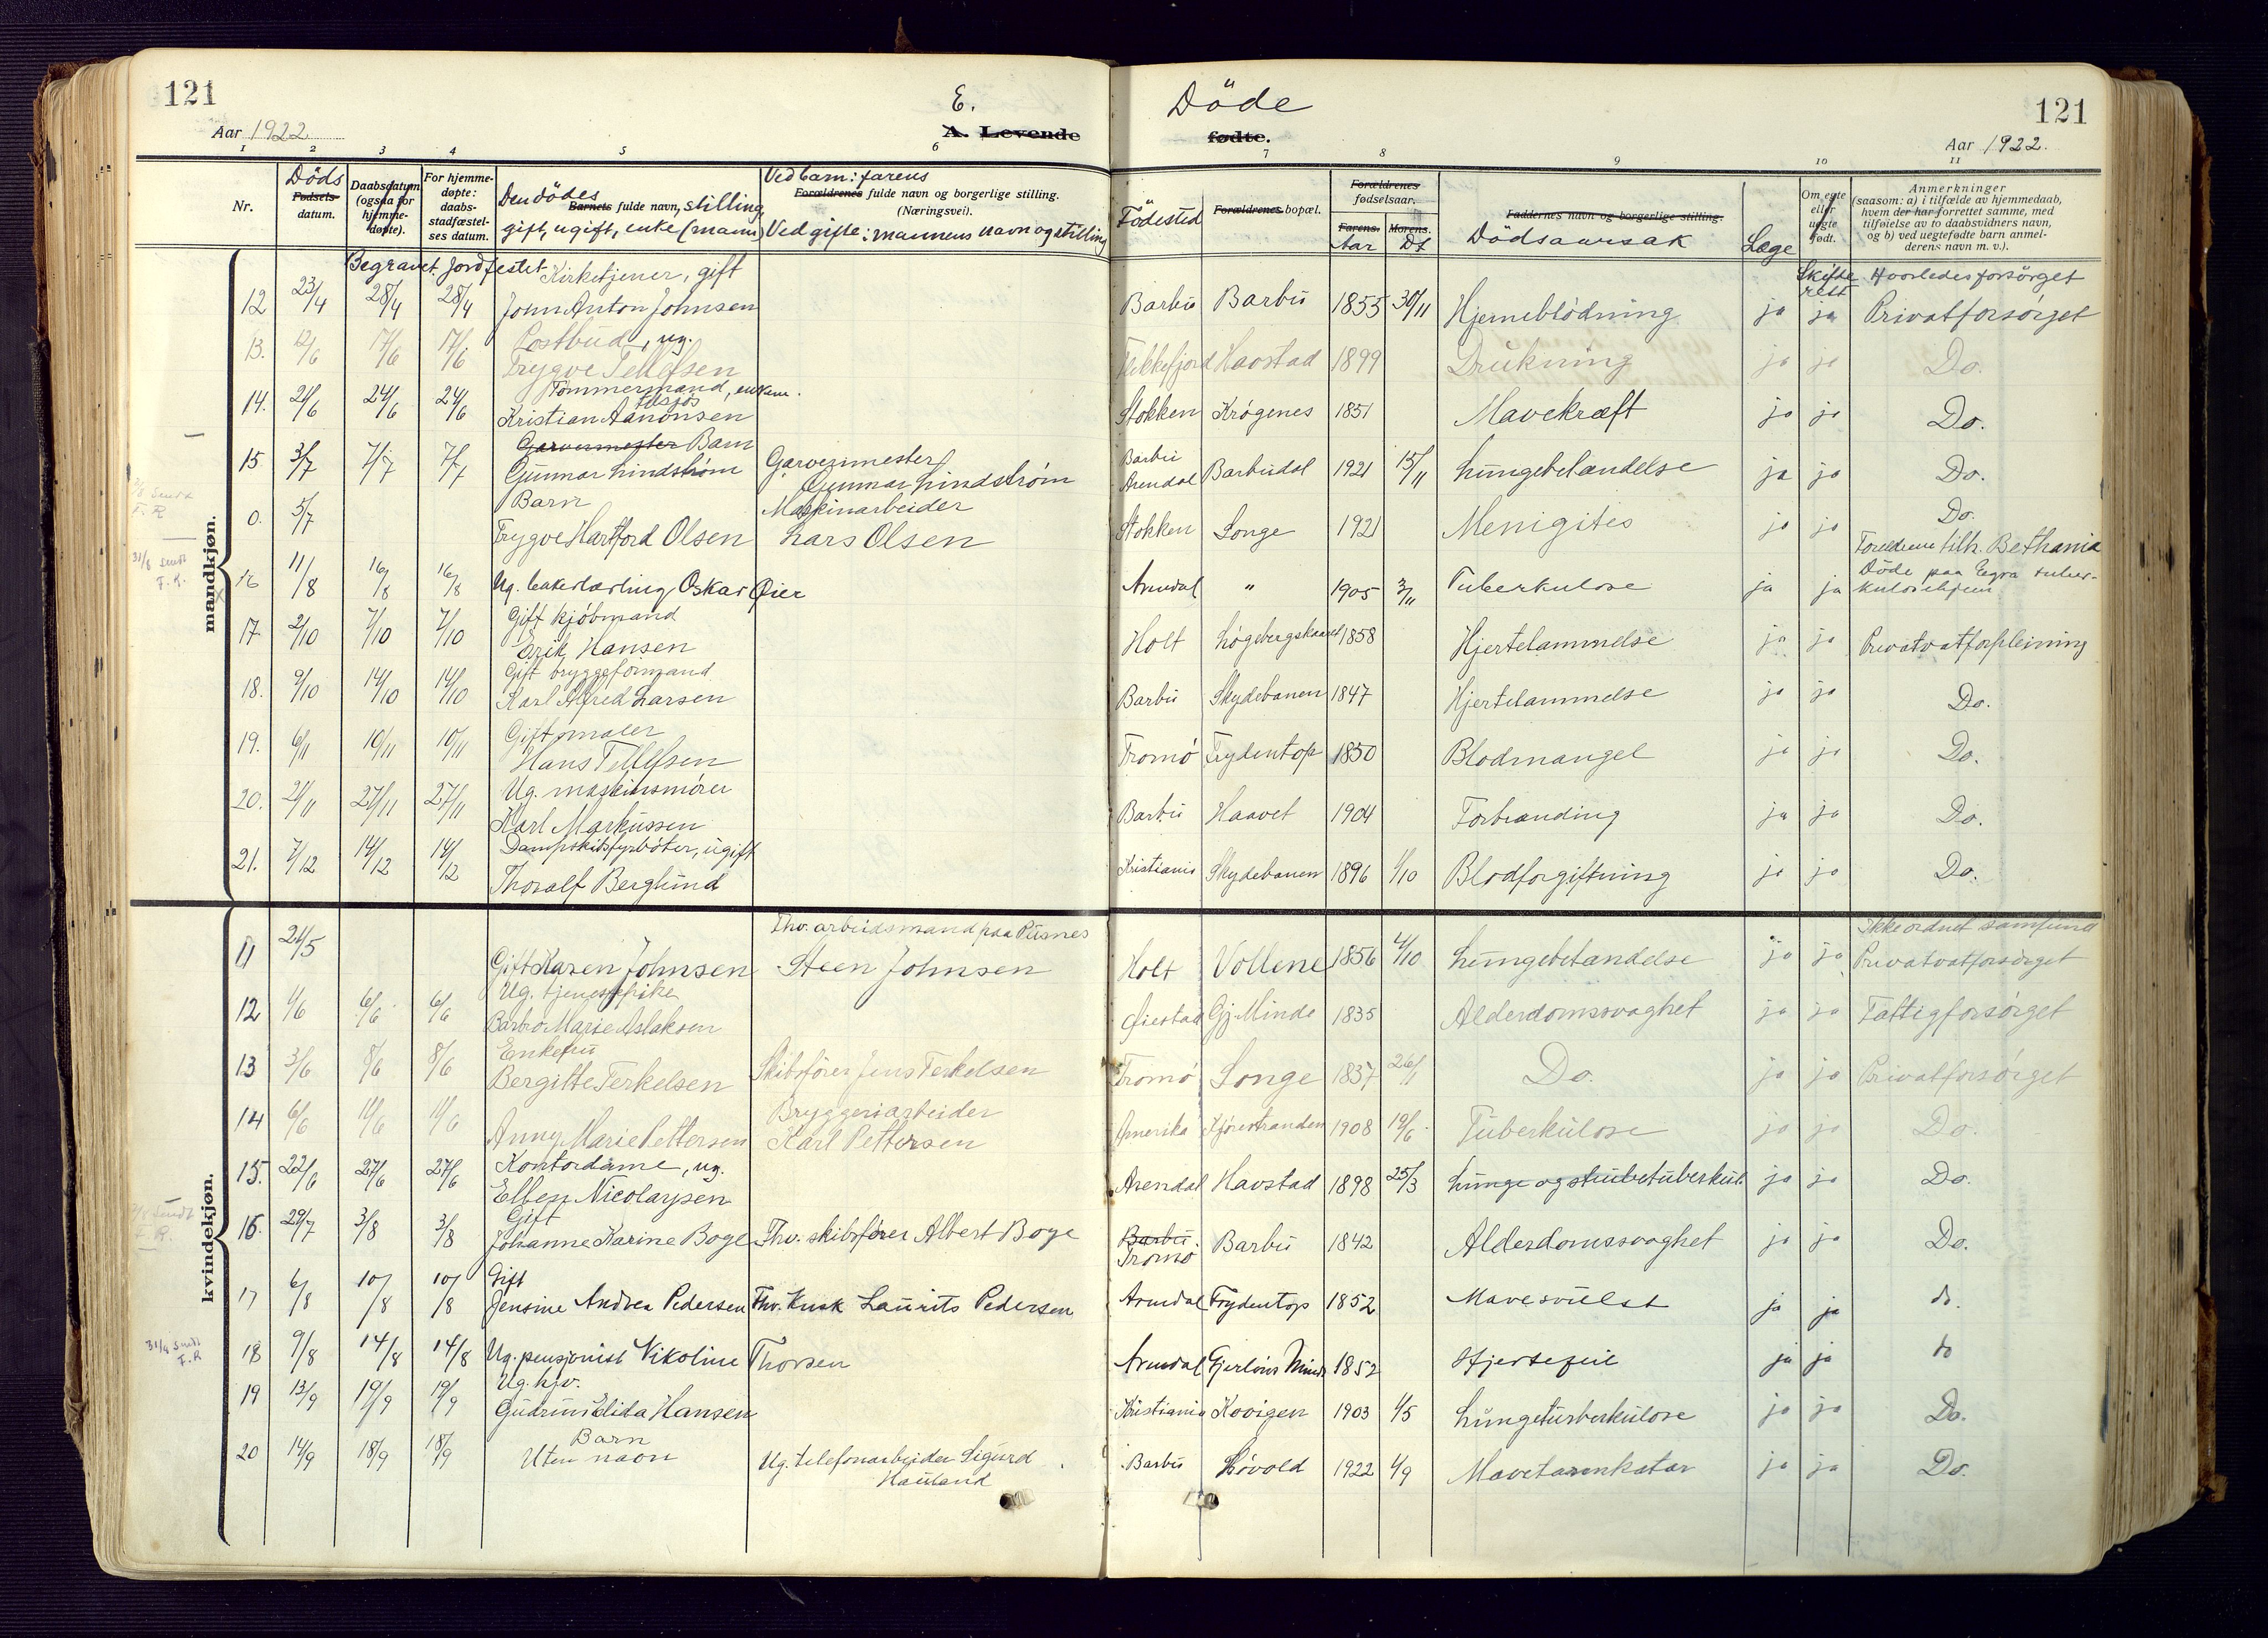 121
Aar 1922
E.
A. Levende
Døde
fødte.
121
Aar 1922.
1 2 3 4 5 6 7 8 9 10 11
Nr.
Døds
Fødsels-
datum.
Daabsdatum
(ogsaa for
hjemme-
døpte).
For hjemme-
døpte:
daabs-
stadfæstel-
ses datum.
Den dødes
Barnets fulde navn, stilling,
gift, ugift, enke (mand)
Ved barn: farens
Forældrenes fulde navn og borgerlige stilling.
(Næringsvei).
Ved gifte: mannens navn og stilling
Födested
Forældrenes bopæl.
Forældrenes
fødselsaar.
Farens. Morens.
Aar Dt
Faddernes navn og borgerlige stilling.
Dödsaarsak
Læge
Om egte
eller
uegte
født.
Anmerkninger
(saasom: a) i tilfælde av hjemmedaab,
hvem der har forrettet samme, med
tilføielse av to daabsvidners navn,
og b) ved uegtefødte barn anmel-
derens navn m. v.).
Begravet. Jordfestet
Skifte
rett
Hvorledes forsörget
mandkjøn.
Kirketjener, gift
12 23/4 28/4 28/4 John Anton Johnsen Barbu Barbu 1855 30/11 Hjerneblödning ja ja Privatforsörget
Postbud, ug.
13. 12/6 17/6 17/6 Trygve Tellefsen Havstad 1899 Drukning ja ja Do.
Tømmermand, enkem.
tilsjøs
14. 21/6 24/6 24/6 Kristian Aanonsen Stokken Krøgenes 1851 Mavekræft ja ja Do.
Garvermester Barn
Garvermester
15 3/7 7/7 7/7 Gunnar Lindstrøm Gunnar Lindstrøm Barbu Arendal Barbudal 1921 15/11 Lungebetændelse ja ja Do.
Barn
Maskinarbeider
0. 5/7 Trygve Hartford Olsen Lars Olsen Stokken Songe 1921 Menigitis ja ja Do.
Foreldrene tilh. Bethania
16 11/8 16/8 16/8 Ug. bakerlærling Oskar Øier Arendal " 1905 3/11 Tuberkulose ja ja Døde paa Eegra tuber-
kulosehjem
Gift kjøbmand
17. 2/10 7/10 7/10 Erik Hansen Holt Løgebergskaaret 1858 Hjertelammelse ja ja Privatvatforpleining
Gift bryggeformand
18. 9/10 14/10 14/10 Karl Alfred Larsen Barbu Skydebanen 1847 Hjertelammelse ja ja Do.
Gift maler
19. 6/11 10/11 10/11 Hans Tellefsen Tromø Frydentop 1850 Blodmangel ja ja Do.
Ug. maskinsmører
20. 21/11 27/11 27/11 Karl Markussen Barbu Haavet 1904 Forbrænding ja ja Do.
Dampskibsfyrbøter, ugift
21. 7/12 14/12 14/12 Thoralf Berglund Kristiania Skydebanen 1896 1/10 Blodforgiftning ja ja Do.
kvindekjøn.
Fhv. arbeidsmand paa Pusnes
Ikke ordnet samfund
11 21/5 Gift Karen Johnsen Steen Johnsen Holt Vollene 1856 4/10 Lungebetændelse ja ja Privatvatforsörget
Ug. tjenestepike
12 1/6 6/6 6/6 Barbro Marie Aslaksen Øiestad Gj. Minde 1835 Alderdomssvaghet ja ja Fattigforsörget
Enkefru
13 3/6 8/6 8/6 Bergitte Terkelsen Skibsfører Jens Terkelsen Tromø Songe 1837 26/1 Do. ja ja Privatforsörget
Bryggeriarbeider
14 6/6 11/6 11/6 Anny Marie Pettersen Karl Pettersen Amerika Kjørestranden 1908 19/6 Tuberkulose ja ja Do.
Kontordame, ug.
15. 22/6 27/6 27/6 Ellen Nicolaysen Arendal Havstad 1898 25/3 Lunge og strubetuberkul. ja ja Do.
Gift
16. 29/7 3/8 3/8 Johanne Karine Boye Fhv. skibsfører Albert Boye Barbu. Tromø Barbu 1842 Alderdomssvaghet ja ja Do.
Gift
17 6/8 10/8 10/8 Jensine Andrea Pedersen Fhv. Kusk Laurits Pedersen Arendal Frydentop 1852 Mavesvulst ja ja do.
31/8 sendt
F.R
18 9/8 14/8 14/8 Ug. pensjonist Nikoline Thorsen Arendal Gjerløws Minde 1852 Hjertefeil ja ja do
Ug. hjv.
19 13/9 19/9 19/9 Gudrun Elida Hansen Kristiania Kovigen 1903 1/5 Lungeturberkulose ja ja Do.
Barn
20 14/9 18/9 18/9 Uten navn Ug. telefonarbeider Sigurd
Hauland Barbu Løvold 1922 1/9 Mavetarmkatar ja ja Do.